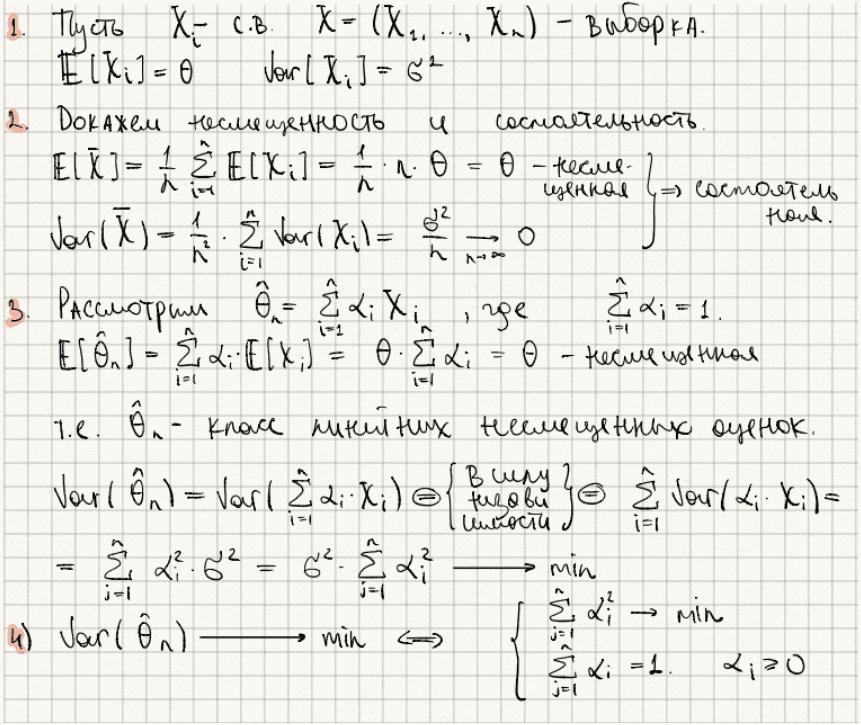 1. Пусть X_i - с.в. X = (X_1, ..., X_n) - выборка.
E[X_i] = θ Var[X_i] = σ²
2. Докажем несмещенность и состоятельность.
E[X̄] = 1/n ∑_{i=1}^n E[X_i] = 1/n · n · θ = θ - несме-щенная } ⇒ состоятель ная.
Var(X̄) = 1/n² · ∑_{i=1}^n Var(X_i) = σ²/n →_{n→∞} 0
3. Рассмотрим θ̂_n = ∑_{i=1}^n α_i X_i , где ∑_{i=1}^n α_i = 1.
E[θ̂_n] = ∑_{i=1}^n α_i · E[X_i] = θ · ∑_{i=1}^n α_i = θ - несмещенная
т.е. θ̂_n - класс линейных несмещенных оценок.
Var(θ̂_n) = Var(∑_{i=1}^n α_i · X_i) = { В силу независимости } = ∑_{i=1}^n Var(α_i · X_i) =
= ∑_{i=1}^n α_i² · σ² = σ² · ∑_{i=1}^n α_i² → min
4) Var(θ̂_n) → min ⇔ { ∑_{i=1}^n α_i² → min
∑_{i=1}^n α_i = 1. α_i ≥ 0